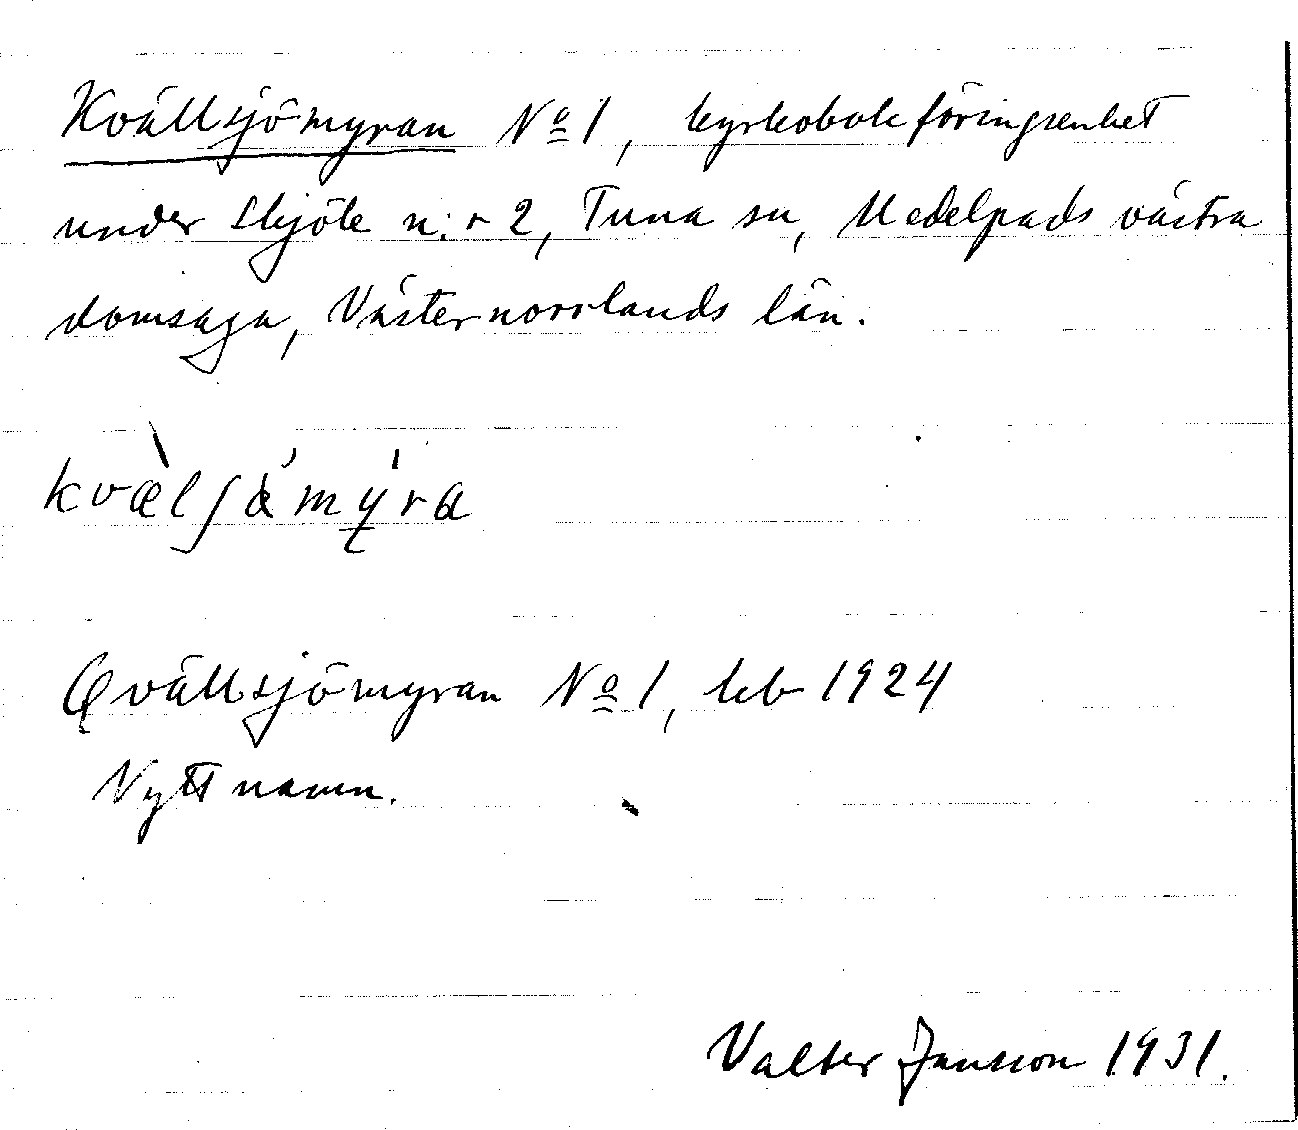 Kvällsjömyran No 1, kyrkobokföringsenhet
under Skjöle n:r 2, Tuna sn, Medelpads västra
domsaga, Västernorrlands län.
Qvällsjömyran No 1, kb 1924
Nytt namn.
Valter Jansson 1931.